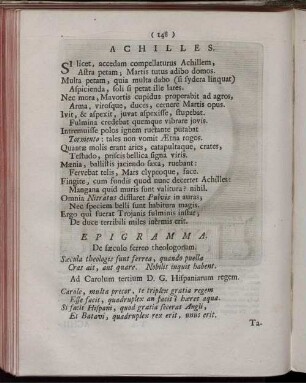 ( 148 )
ACHILLES.
SI licet, accedam compellaturus Achillem,
Astra petam; Martis tutus adibo domos.
Multa petam, quia multa dabo (si sydera linquat)
Aspicienda, soli si petat ille lares.
Nec mora, Mavortis cupidus properabit ad agros,
Arma, virosque, duces, cernere Martis opus.
Ivit, & aspexit, juvat aspexisse, stupebat.
Fulmina credebat quemque vibrare jovis.
Intremuisse polos ignem ructante putabat
Tormento: tales non vomit Ætna rogos.
Quatere molis erant aries, catapultaque, crates,
Testudo, priscis bellica signa viris.
Mœnia, ballistis jaciendo saxa, ruebant:
Fervebat telis, Mars clypeoque, face.
Fingite, cum fundis quod nunc decertet Achilles:
Mangana quid muris sunt valitura? nihil.
Omnia Nitratus difflaret Pulvis in auras,
Nec speciem belli sunt habitura magis.
Ergo qui fuerat Trojanis fulminis instar;
De duce terribili miles inermis erit.
EPIGRAMMA.
De sæculo ferreo theologorum.
Sæcula theologis sunt ferrea, quando puella
Cras ait, aut quare. Nobilis inquit habent.
Ad Carolum tertium D. G. Hispaniarum regem.
Carole, multa precor, te triplex gratia regem
Esse facit, quadruplex an facit? hæret aqua.
Si facit Hispani, quod gratia fecerat Angli,
Et Batavi, quadruplex rex erit, unus erit.
Ta-